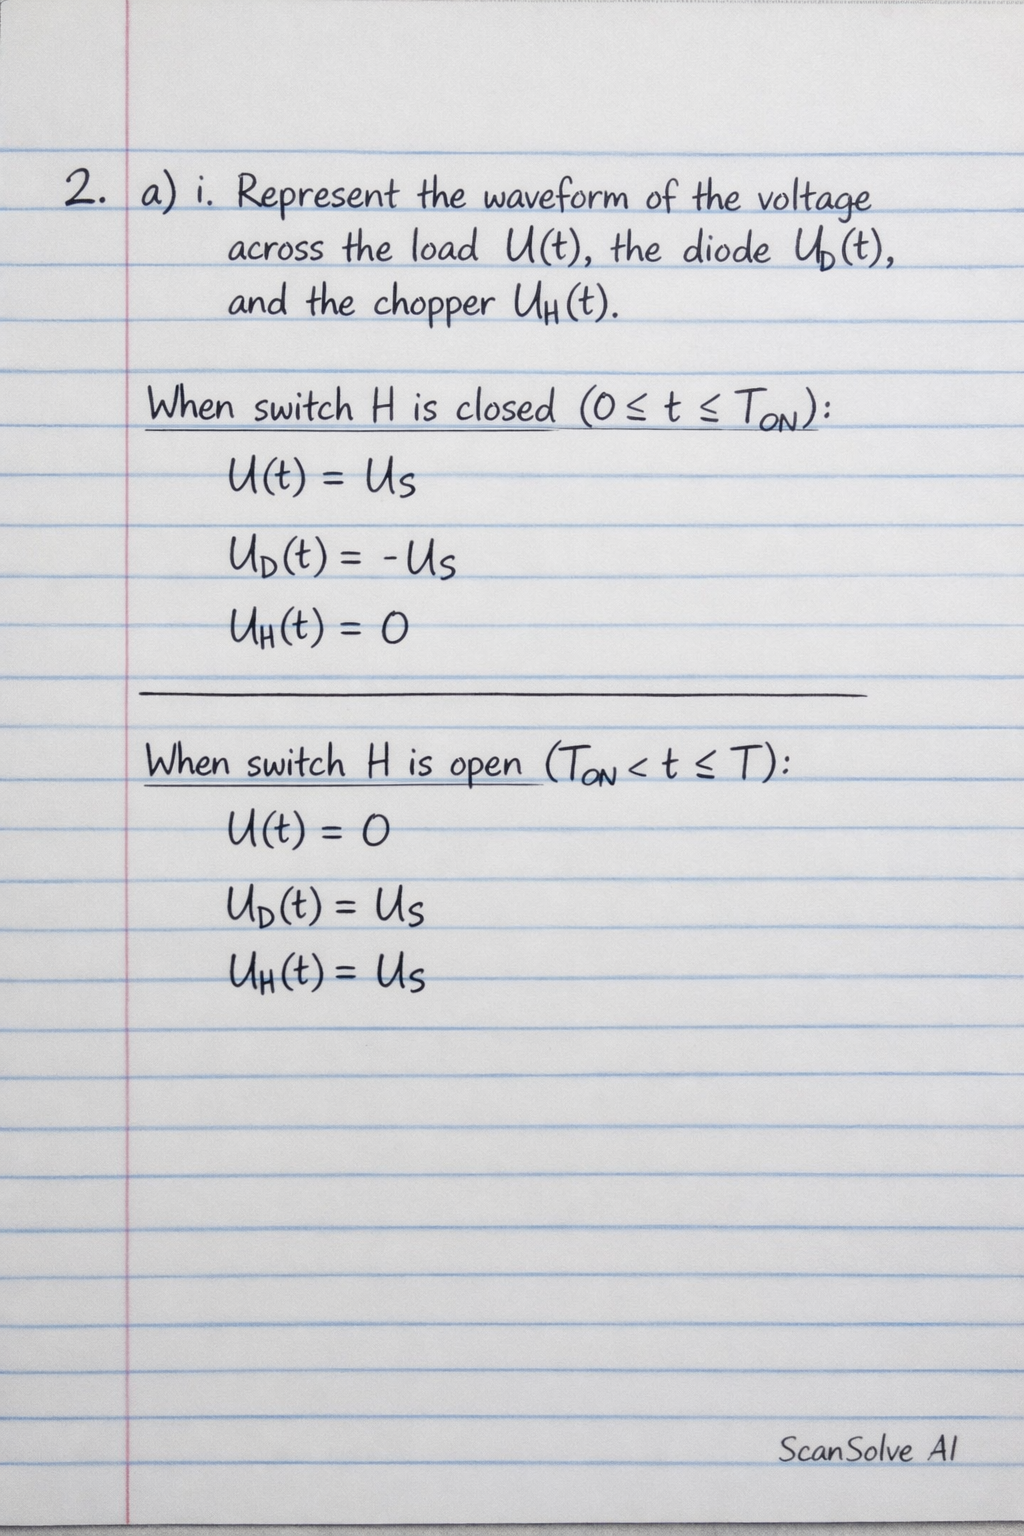 2. a) i. Represent the waveform of the voltage
across the load U(t), the diode U_D(t),
and the chopper U_H(t).
When switch H is closed (0 ≤ t ≤ T_ON):
U(t) = U_S
U_D(t) = -U_S
U_H(t) = 0
When switch H is open (T_ON < t ≤ T):
U(t) = 0
U_D(t) = U_S
U_H(t) = U_S
ScanSolve AI